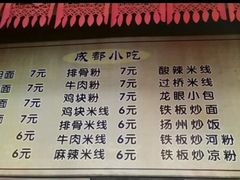 成都小吃
面 7元 排骨粉 7元 酸辣米线
面 7元 牛肉粉 7元 过桥米线
7元 鸡块粉 7元 龙眼小包
6元 鸡块米线 6元 铁板炒面
6元 排骨米线 6元 扬州炒饭
6元 牛肉米线 6元 铁板炒河粉
6元 麻辣米线 6元 铁板炒凉粉